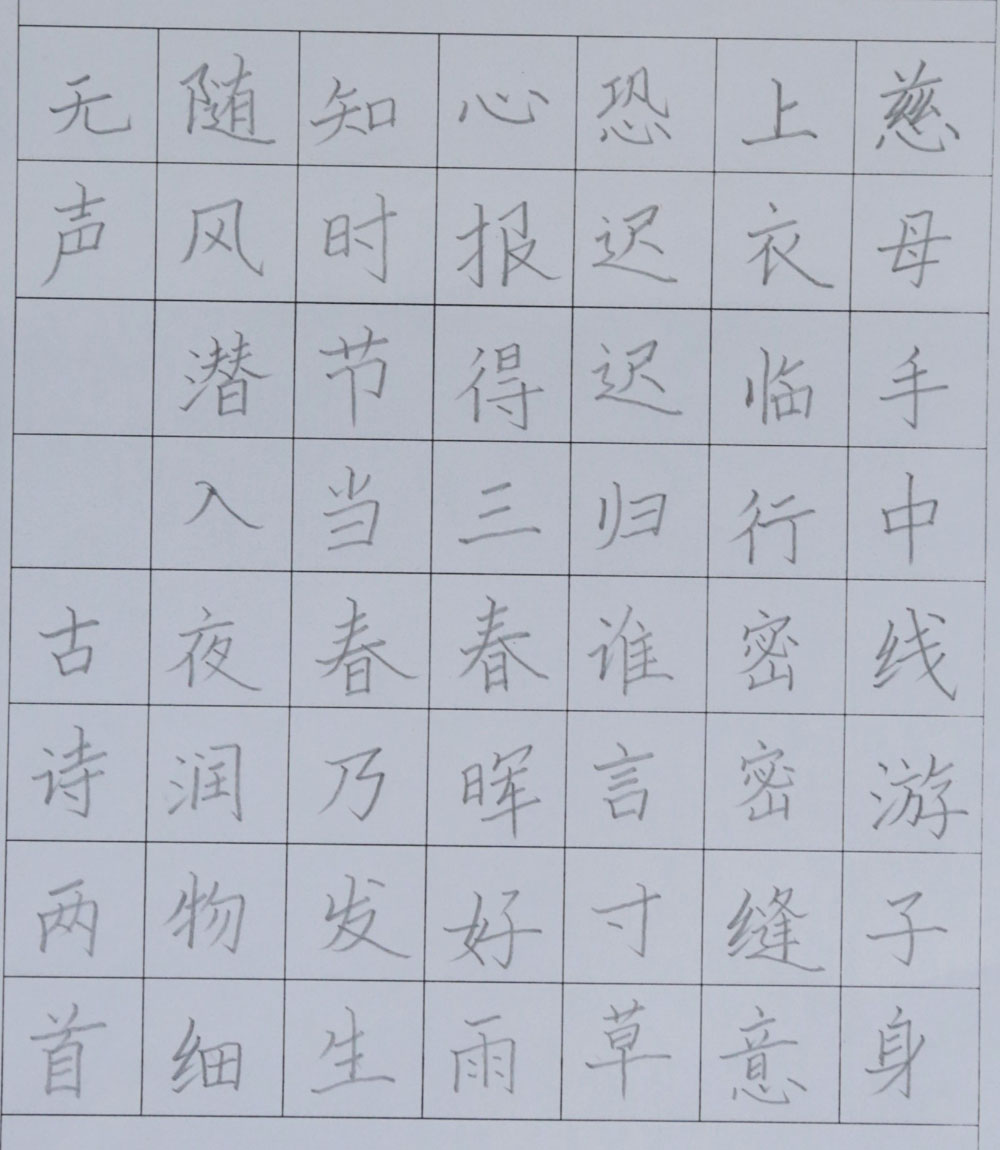 慈母手中线游子身
上衣临行密密缝意
恐迟迟归谁言寸草
心报得三春晖好雨
知时节当春乃发生
随风潜入夜润物细
无声 古诗两首